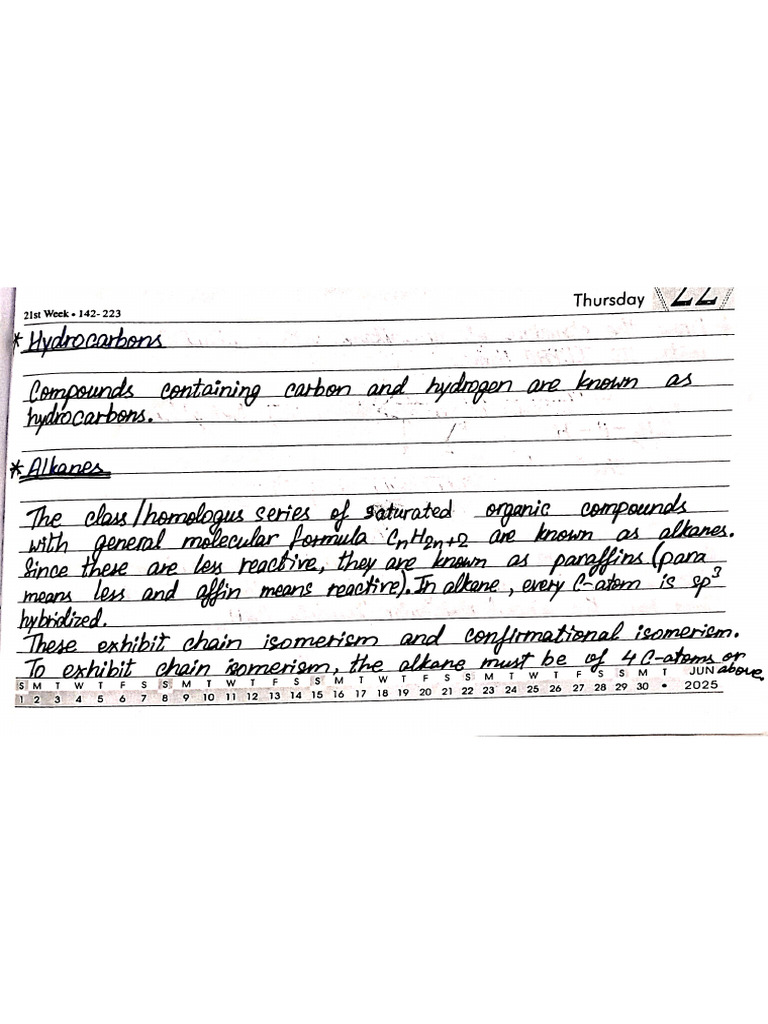 Thursday 22
21st Week • 142-223
* Hydrocarbons
Compounds containing carbon and hydrogen are known as
hydrocarbons.
* Alkanes
The class/homologus series of saturated organic compounds
with general molecular formula CnH2n+2 are known as alkanes.
Since these are less reactive, they are known as paraffins (para
means less and affin means reactive). In alkane, every C-atom is sp³
hybridized.
These exhibit chain isomerism and confirmational isomerism.
To exhibit chain isomerism, the alkane must be of 4 C-atoms or
above.
S M T W T F S S M T W T F S S M T W T F S S M T W T F S S M T JUN
1 2 3 4 5 6 7 8 9 10 11 12 13 14 15 16 17 18 19 20 21 22 23 24 25 26 27 28 29 30 • 2025